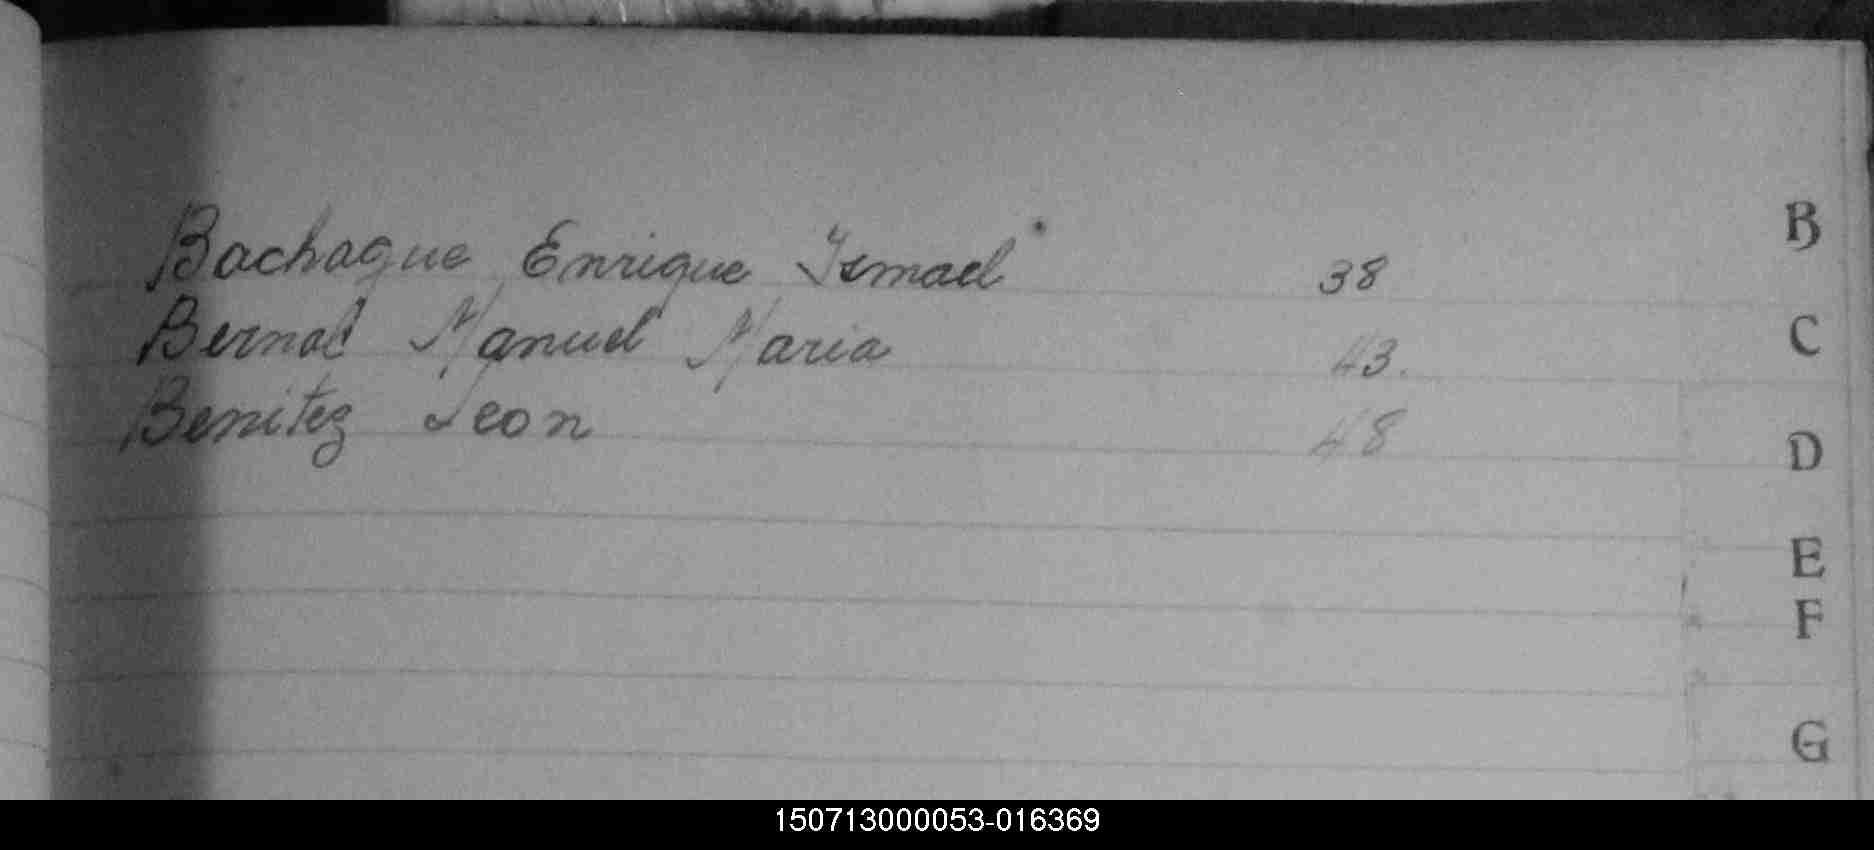 Bachague Enrique Ismael 38
Bernal Manuel Maria 43.
Benitez Leon 48
B
C
D
E
F
G
150713000053-016369